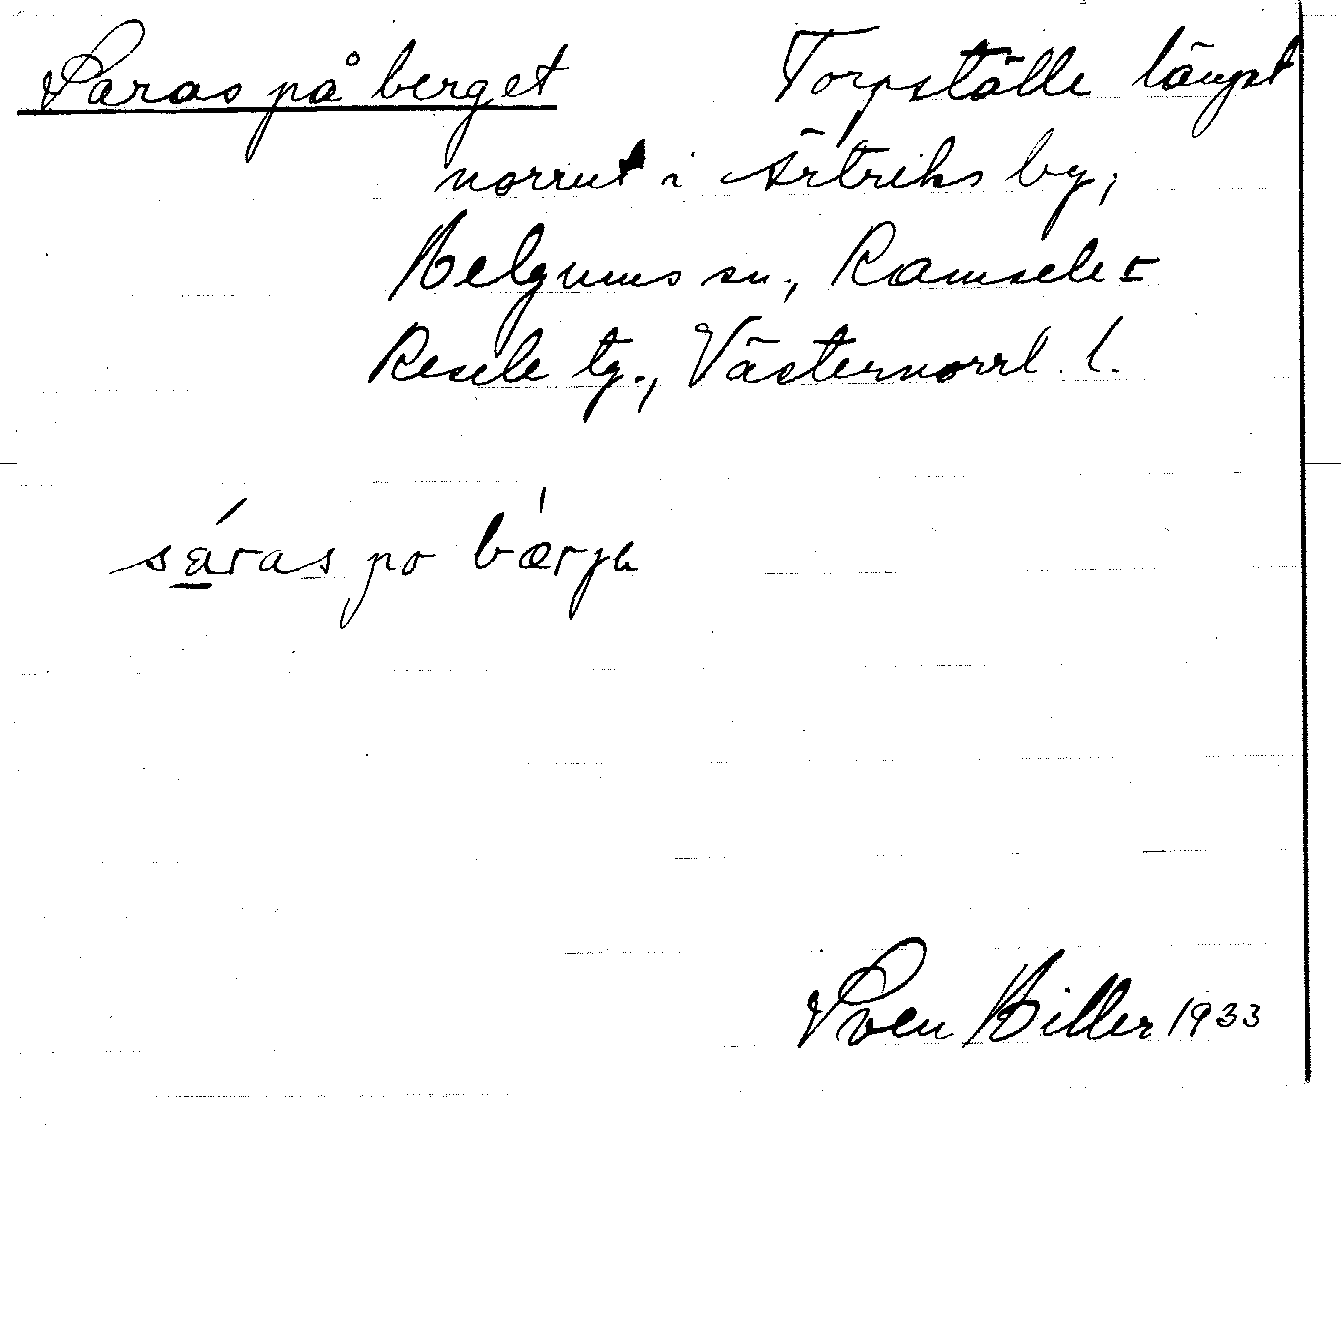 Saras på berget Torpställe längst
norrut i Ärtriks by,
Helgums sn., Ramsele-
Resele tg., Västernorrl. l.
sáras po bærjɩ
Sven Hiller 1933